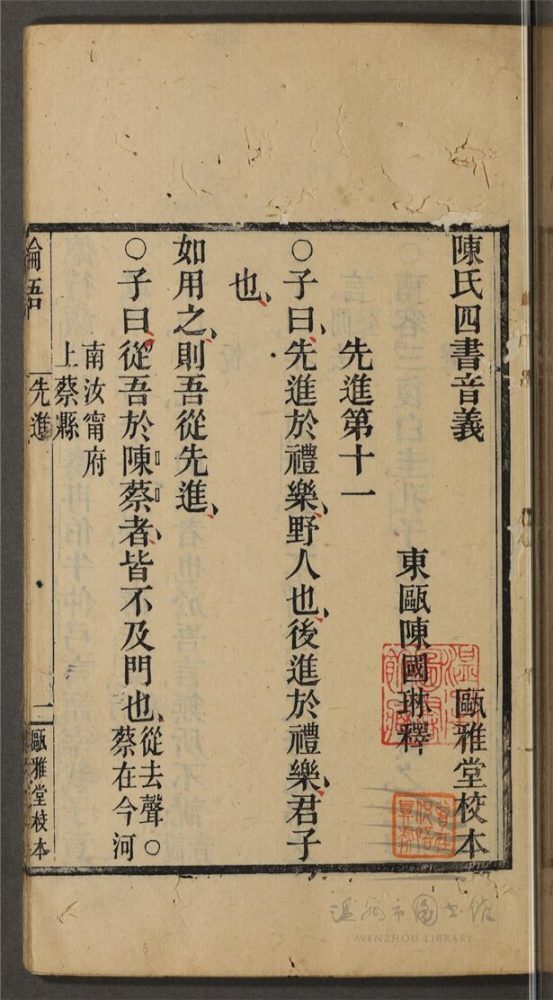 陳氏四書音義
甌雅堂校本
東甌陳國琳釋
先進第十一
○子曰、先進於禮樂、野人也、後進於禮樂、君子
也、
如用之、則吾從先進、
○子曰、從吾於陳蔡者、皆不及門也、從去聲○
蔡在今河
南汝甯府
上蔡縣
論語
先進
二
甌雅堂校本
溫州市圖書館
WENZHOU LIBRARY